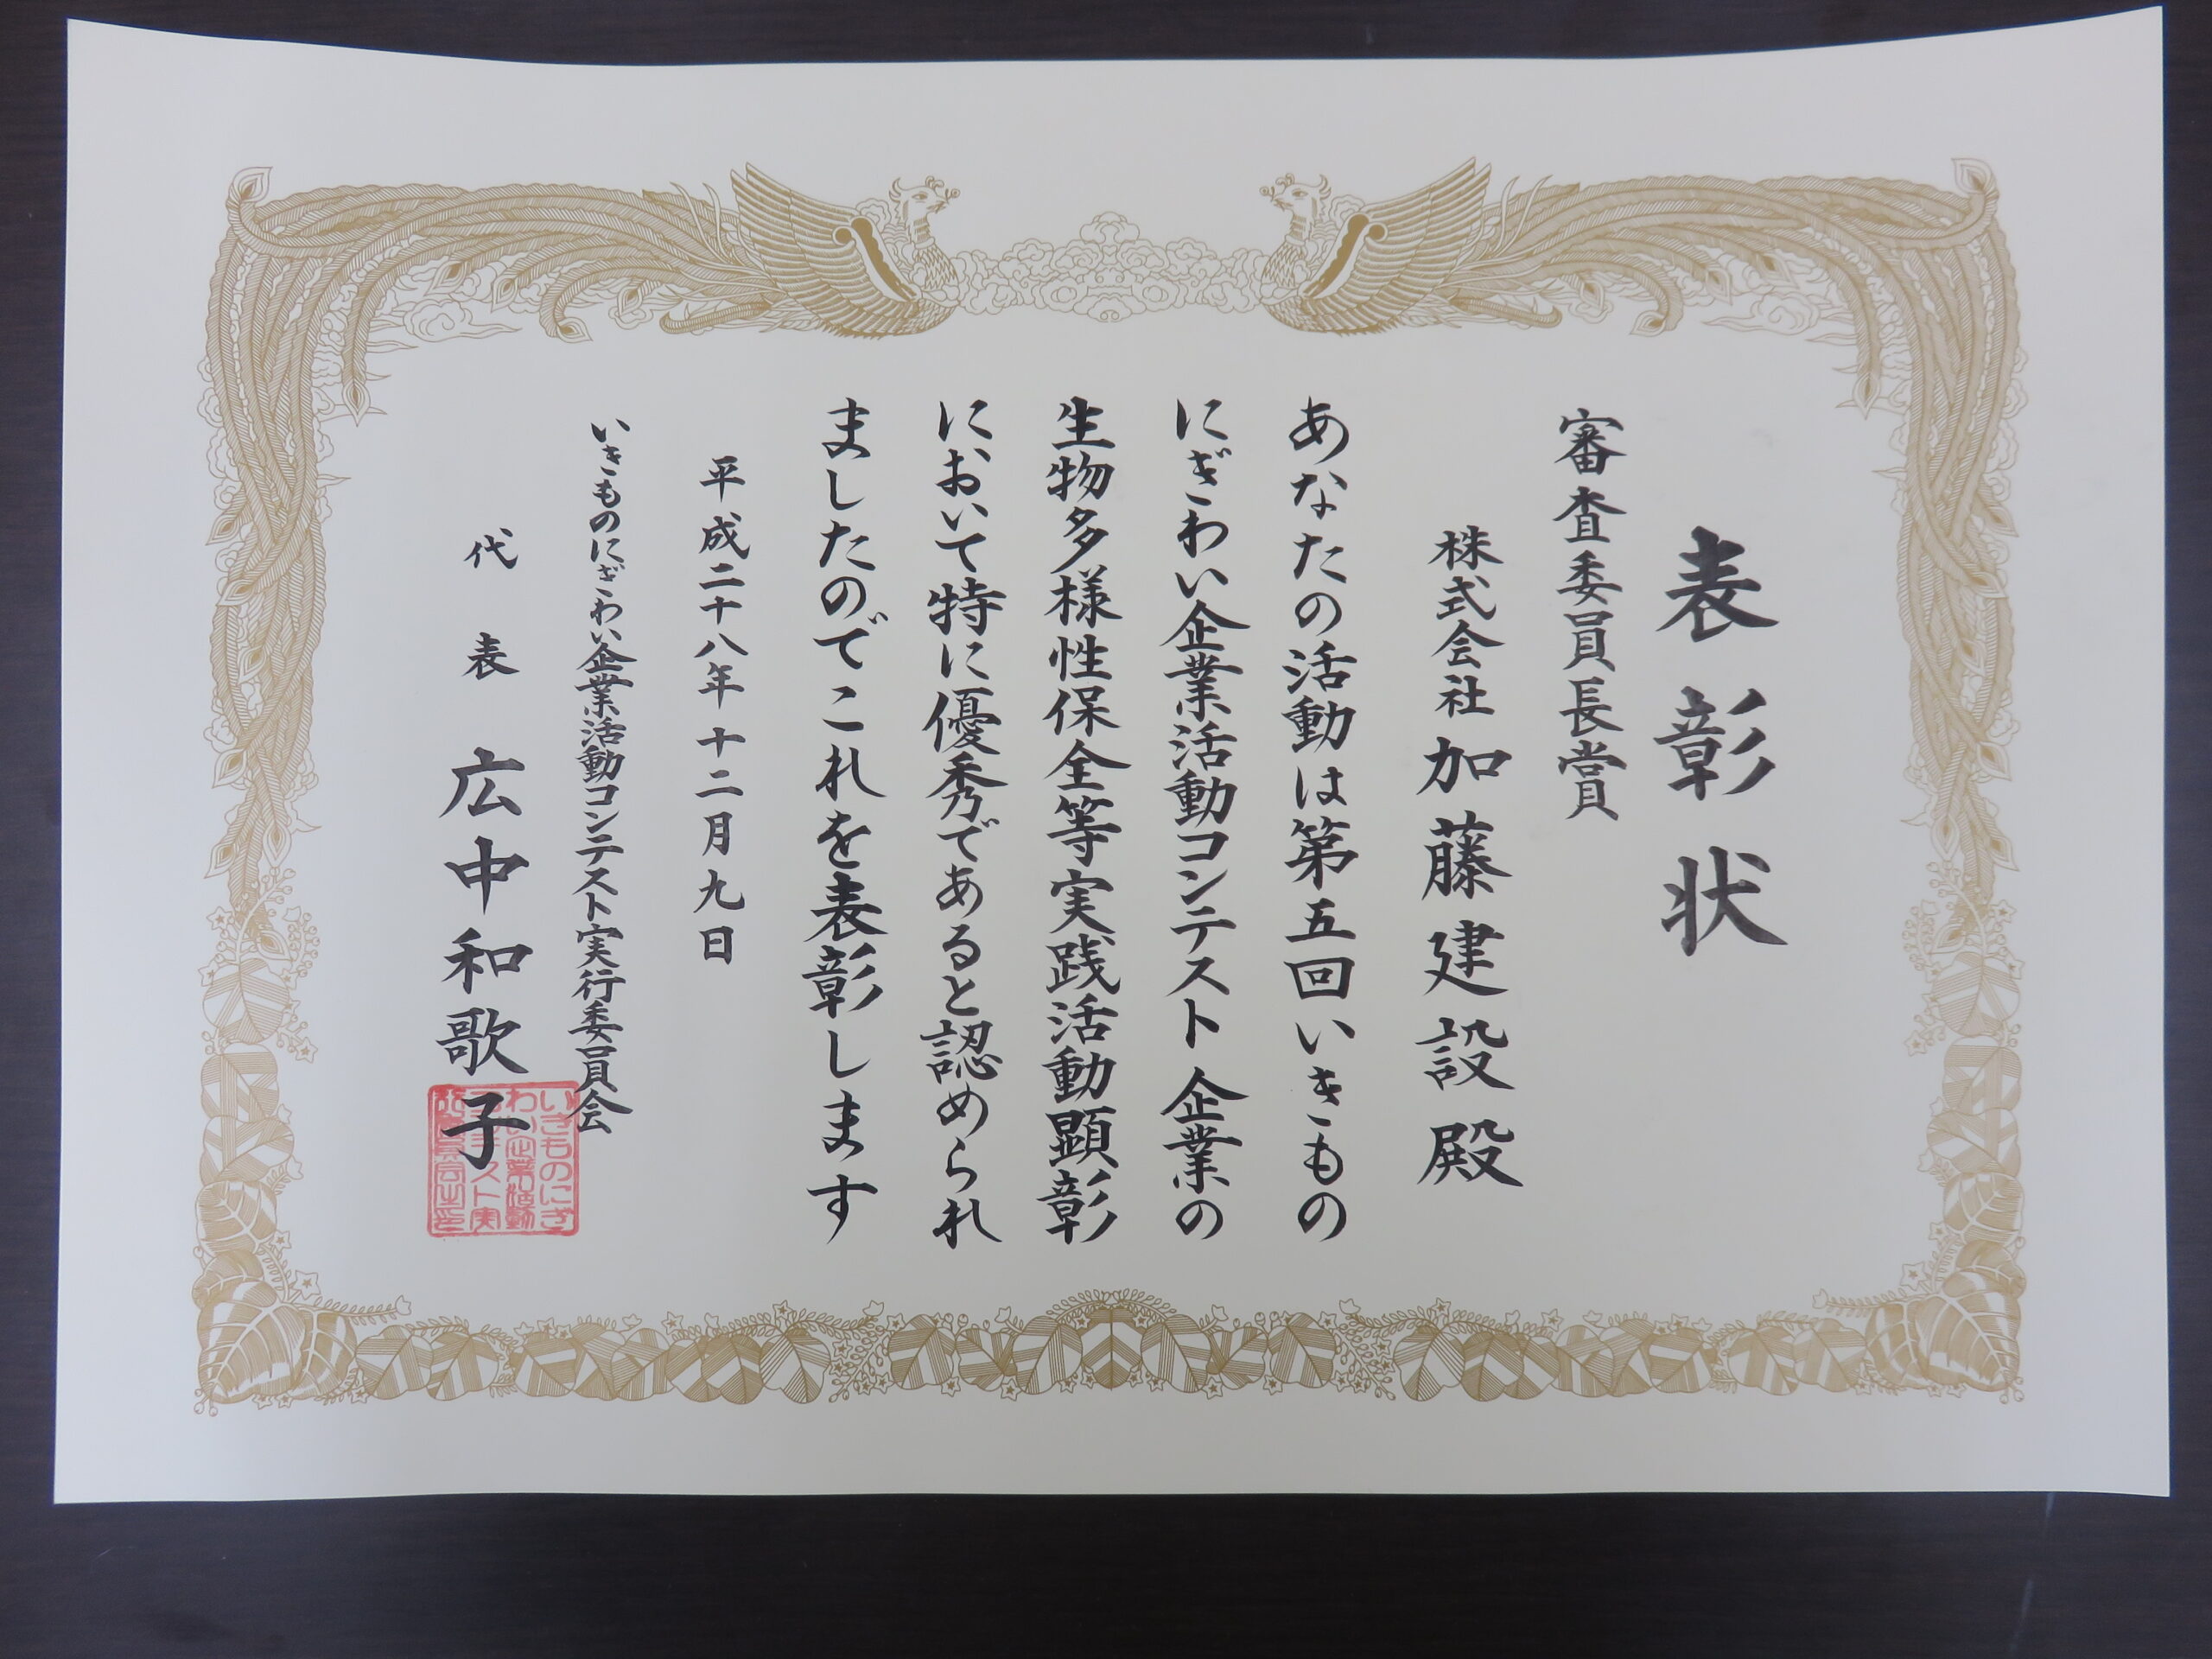 表彰状
審査委員長賞
株式会社加藤建設殿
あなたの活動は第五回いきもの
にぎわい企業活動コンテスト企業の
生物多様性保全等実践活動顕彰
において特に優秀であると認められ
ましたのでこれを表彰します
平成二十八年十二月九日
いきものにぎわい企業活動コンテスト実行委員会
代表 広中和歌子
いきものにぎ
わい企業活動